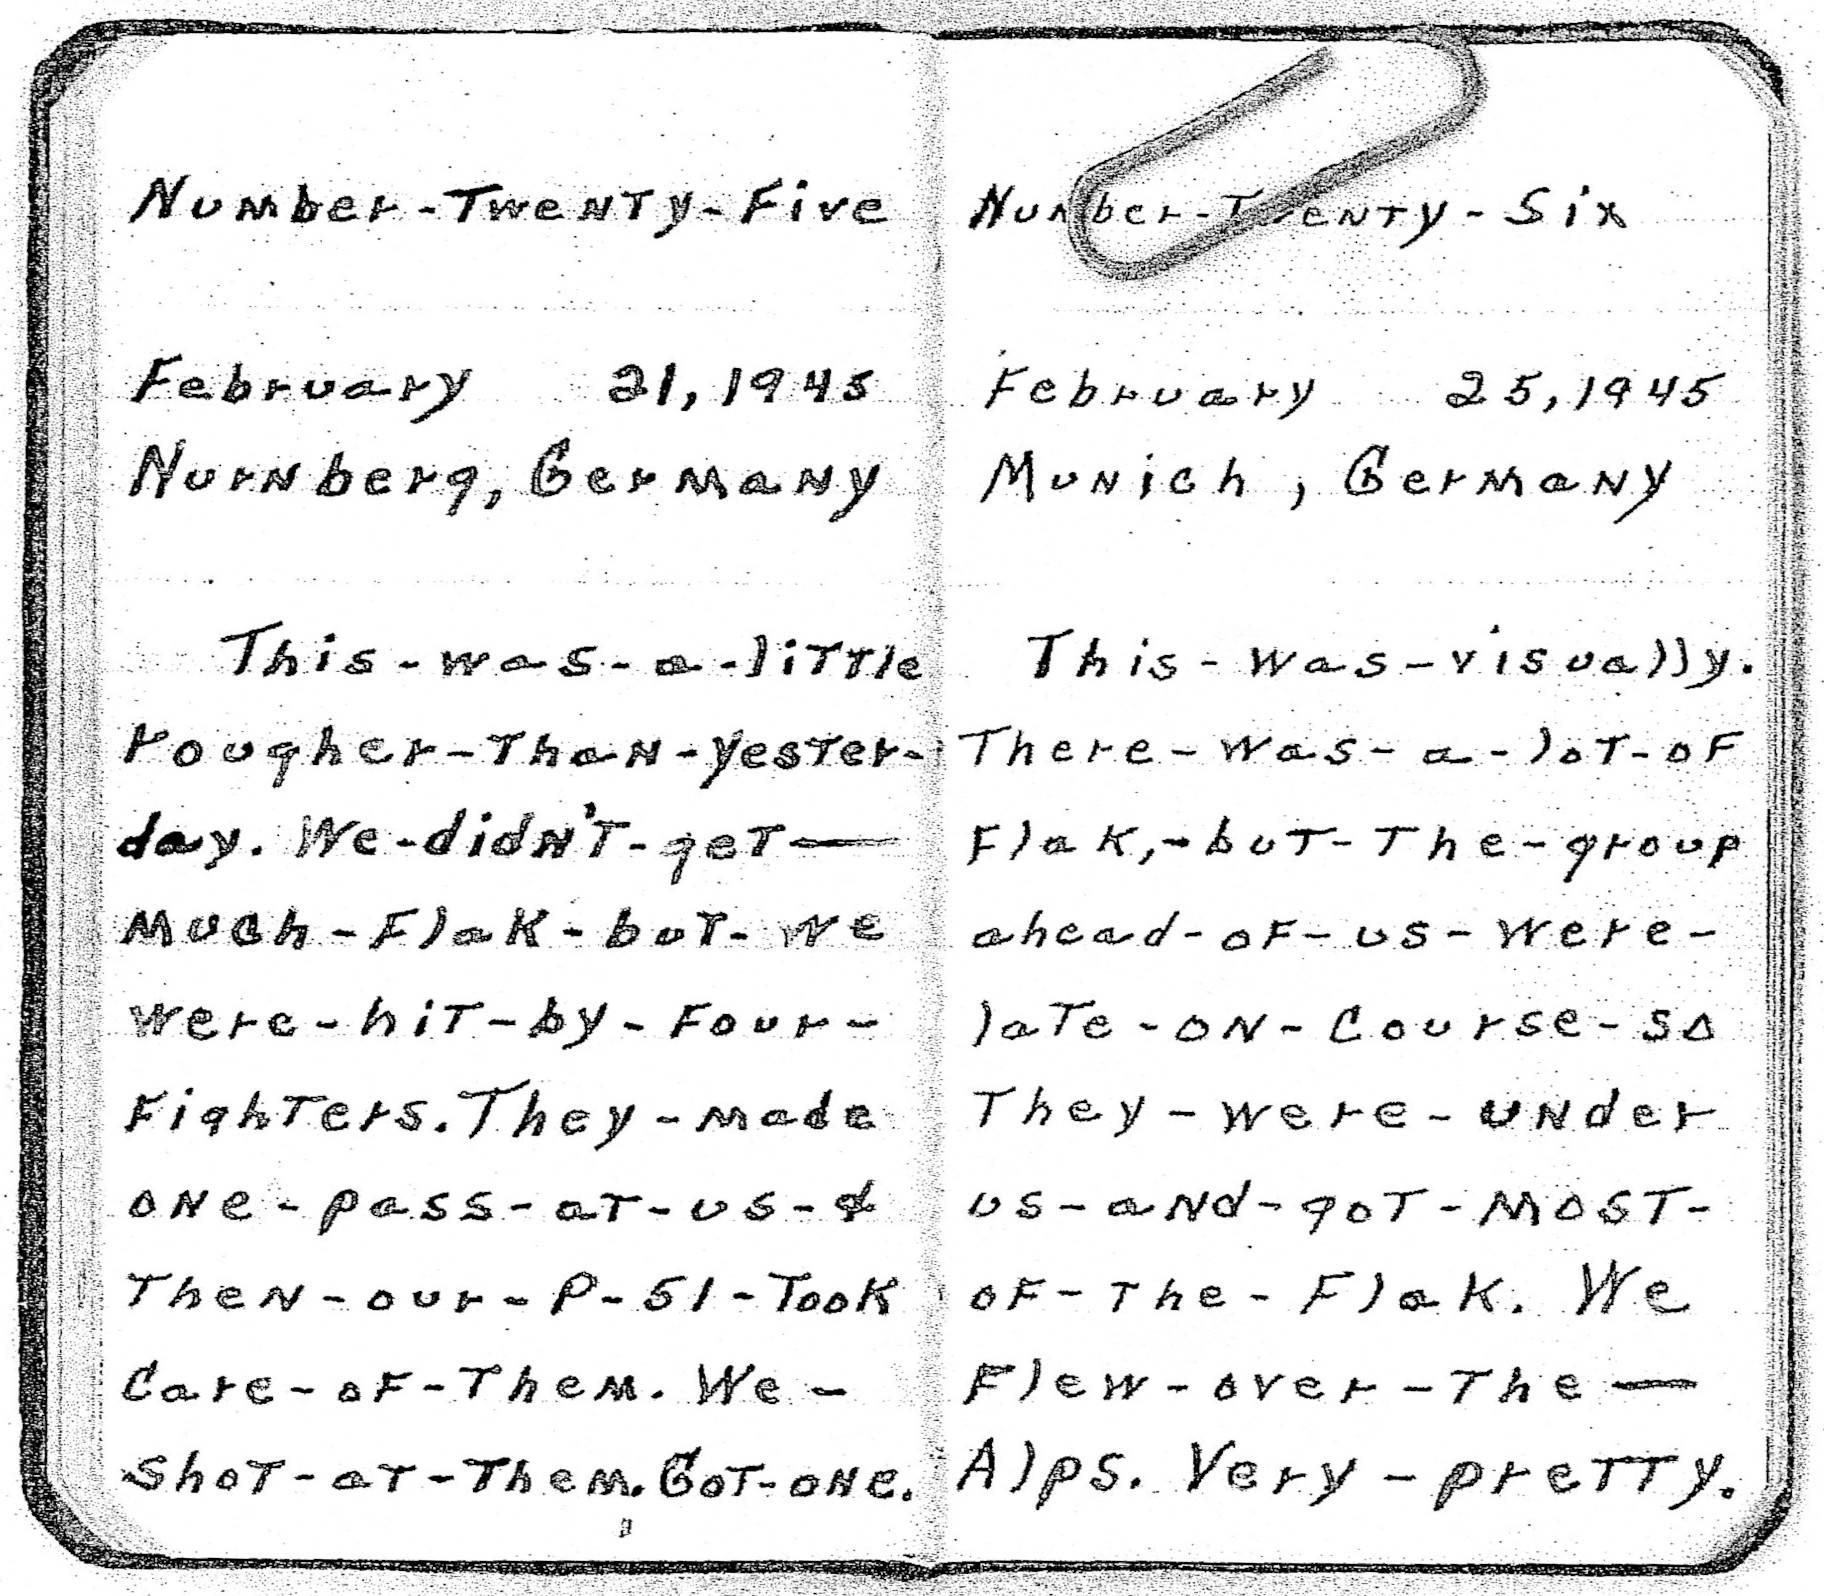 Number-Twenty-Five
February 21, 1945
Nurnberg, Germany
This-was-a-little
rougher-than-yester-
day. We-didn't-get—
much-flak-but-we
were-hit-by-four-
fighters. They-made
one-pass-at-us-&
then-our-P-51-Took
care-of-them. We-
shot-at-them. Got-one.
Number-Twenty-Six
February 25, 1945
Munich, Germany
This-was-visually.
There-was-a-lot-of
flak,-but-the-group
ahead-of-us-were-
late-on-course-so
they-were-under
us-and-got-most-
of-the-flak. We
flew-over-the—
Alps. Very-pretty.